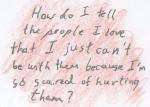 How do I tell
the people I love
that I just can't
be with them because I'm
so scared of hurting
them?